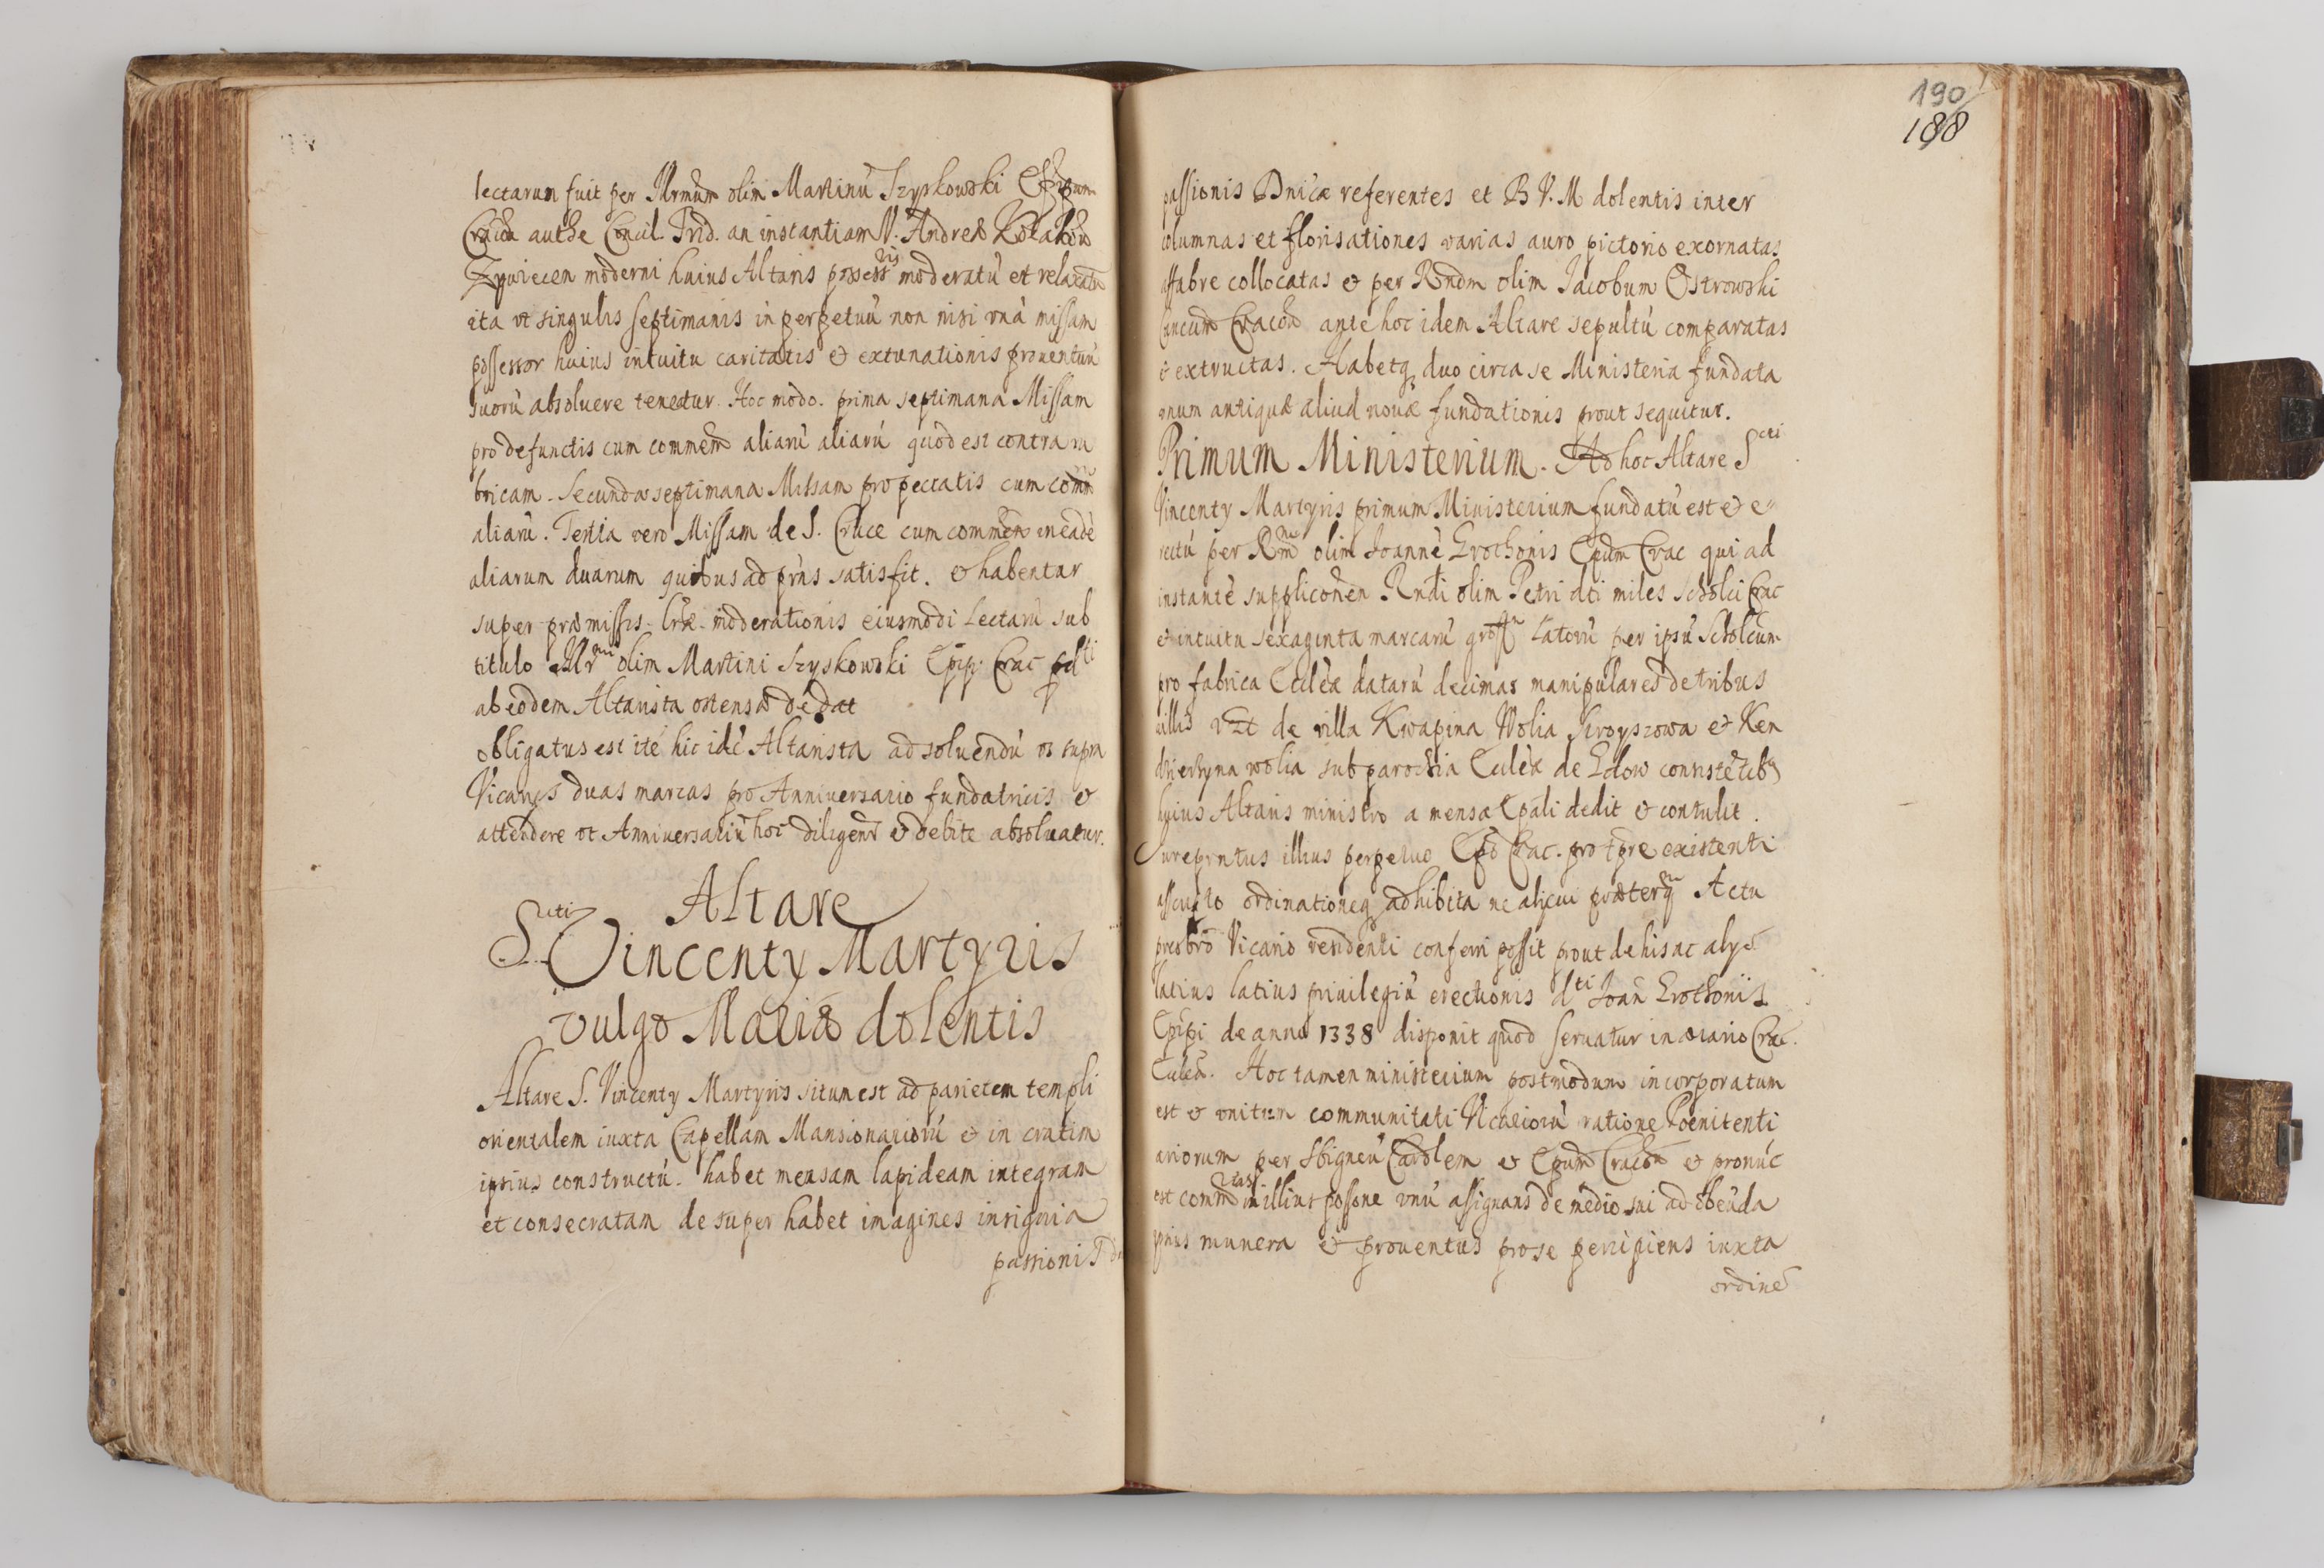 lectarum fuit per Illrmum olim Martinú Szyskowski Epum
Cracou authe Concil. Trid. an instantiam V. Andreæ
moderni huius Altaris possessoris moderatú et relaxatu
ita vt singulis septimanis in perpetuú non nisi vná missam
possessor huius intuitu caritatis & extenationis prouentuú
suorú absoluere tenetur. Hoc modo. prima septimana Missam
pro defunctis cum commem aliarú aliarú quod est contra ru
bricam. Secunda septimana Missam pro peccatis cum comm
aliarú. Tertia vero Missam de S. Cruce cum commem in eadē
aliarum duarum quibus ad prūs satisfit. & habentur
super præmissis lræ moderationis eiusmodi Lectarú sub
titulo Illrmi olim Martini Szyskowski Epi Crac pdti
ab eodem Altarista ostensæ de dat
obligatus est itē hic idē Altarista ad soluendú vt supra
Vicarijs duas marcas pro Anniuersario fundatricis &
attendere vt Anniuersariú hoc diligenr & debite absoluatur.
Altare
S.cti Vincenty Martyris
vulgo Mariæ dolentis
Altare S. Vincenty Martyris situm est ad parietem templi
orientalem iuxta Capellam Mansionariorú & in cratim
ipsius constructú. habet mensam lapideam integram
et consecratam de super habet imagines insignia
passionis
190
188
passionis Dnicæ referentes et B V. M dolentis inter
columnas et florisationes varias auro pictorio exornatas
affabre collocatas & per Rndm olim Jacobum Ostrowski
Cancum Cracou ante hoc idem Altare sepultú comparatas
& extructas. Habetq duo circa se Ministeria fundata
vnum antiquæ aliud nouæ fundationis prout sequitur.
Primum Ministerium. Ad hoc Altare Scti
Vincenty Martyris primum Ministerium fundatú est & e
rectú per Rmu olim Joannē Grothonis Epum Crac qui ad
instantē supplicoñen Rndi olim Petri dti miles Scholci Crac
& intuitu sexaginta marcarú gross latorú per ipsú Scholcum
pro fabrica Ecclēæ datarú decimas manipulares de tribus
villis vzt de villa Kwapina Wolia Stroyszowa & Ken
drierzyna wolia sub parochia Ecclēæ de consistētibq
huius Altaris ministro a mensa Epali dedit & contulit.
Jureprntus illius perpetuo Epo Crac. pro tpre existenti
asscripto ordinationeq adhibita ne alicui præterq Actu
presbro Vicario residenti conferri possit prout de his ac alys
latius latius priuilegiú erectionis dti Joan Grothonis
Epipi de anno 1338 disponit quod seruatur in ærario Crac.
Ecclēæ. Hoc tamen ministerium postmodum incorporatum
est & vnitum communitati Vicariorú ratione Poenitenti
ariorum per Sbigneú Cardlem & Epum Cracou & pronúc
est commtas illius possone vnú assignans de medio sui ad obeuda
ipsius munera & prouentus pro se percipiens iuxta
ordinē